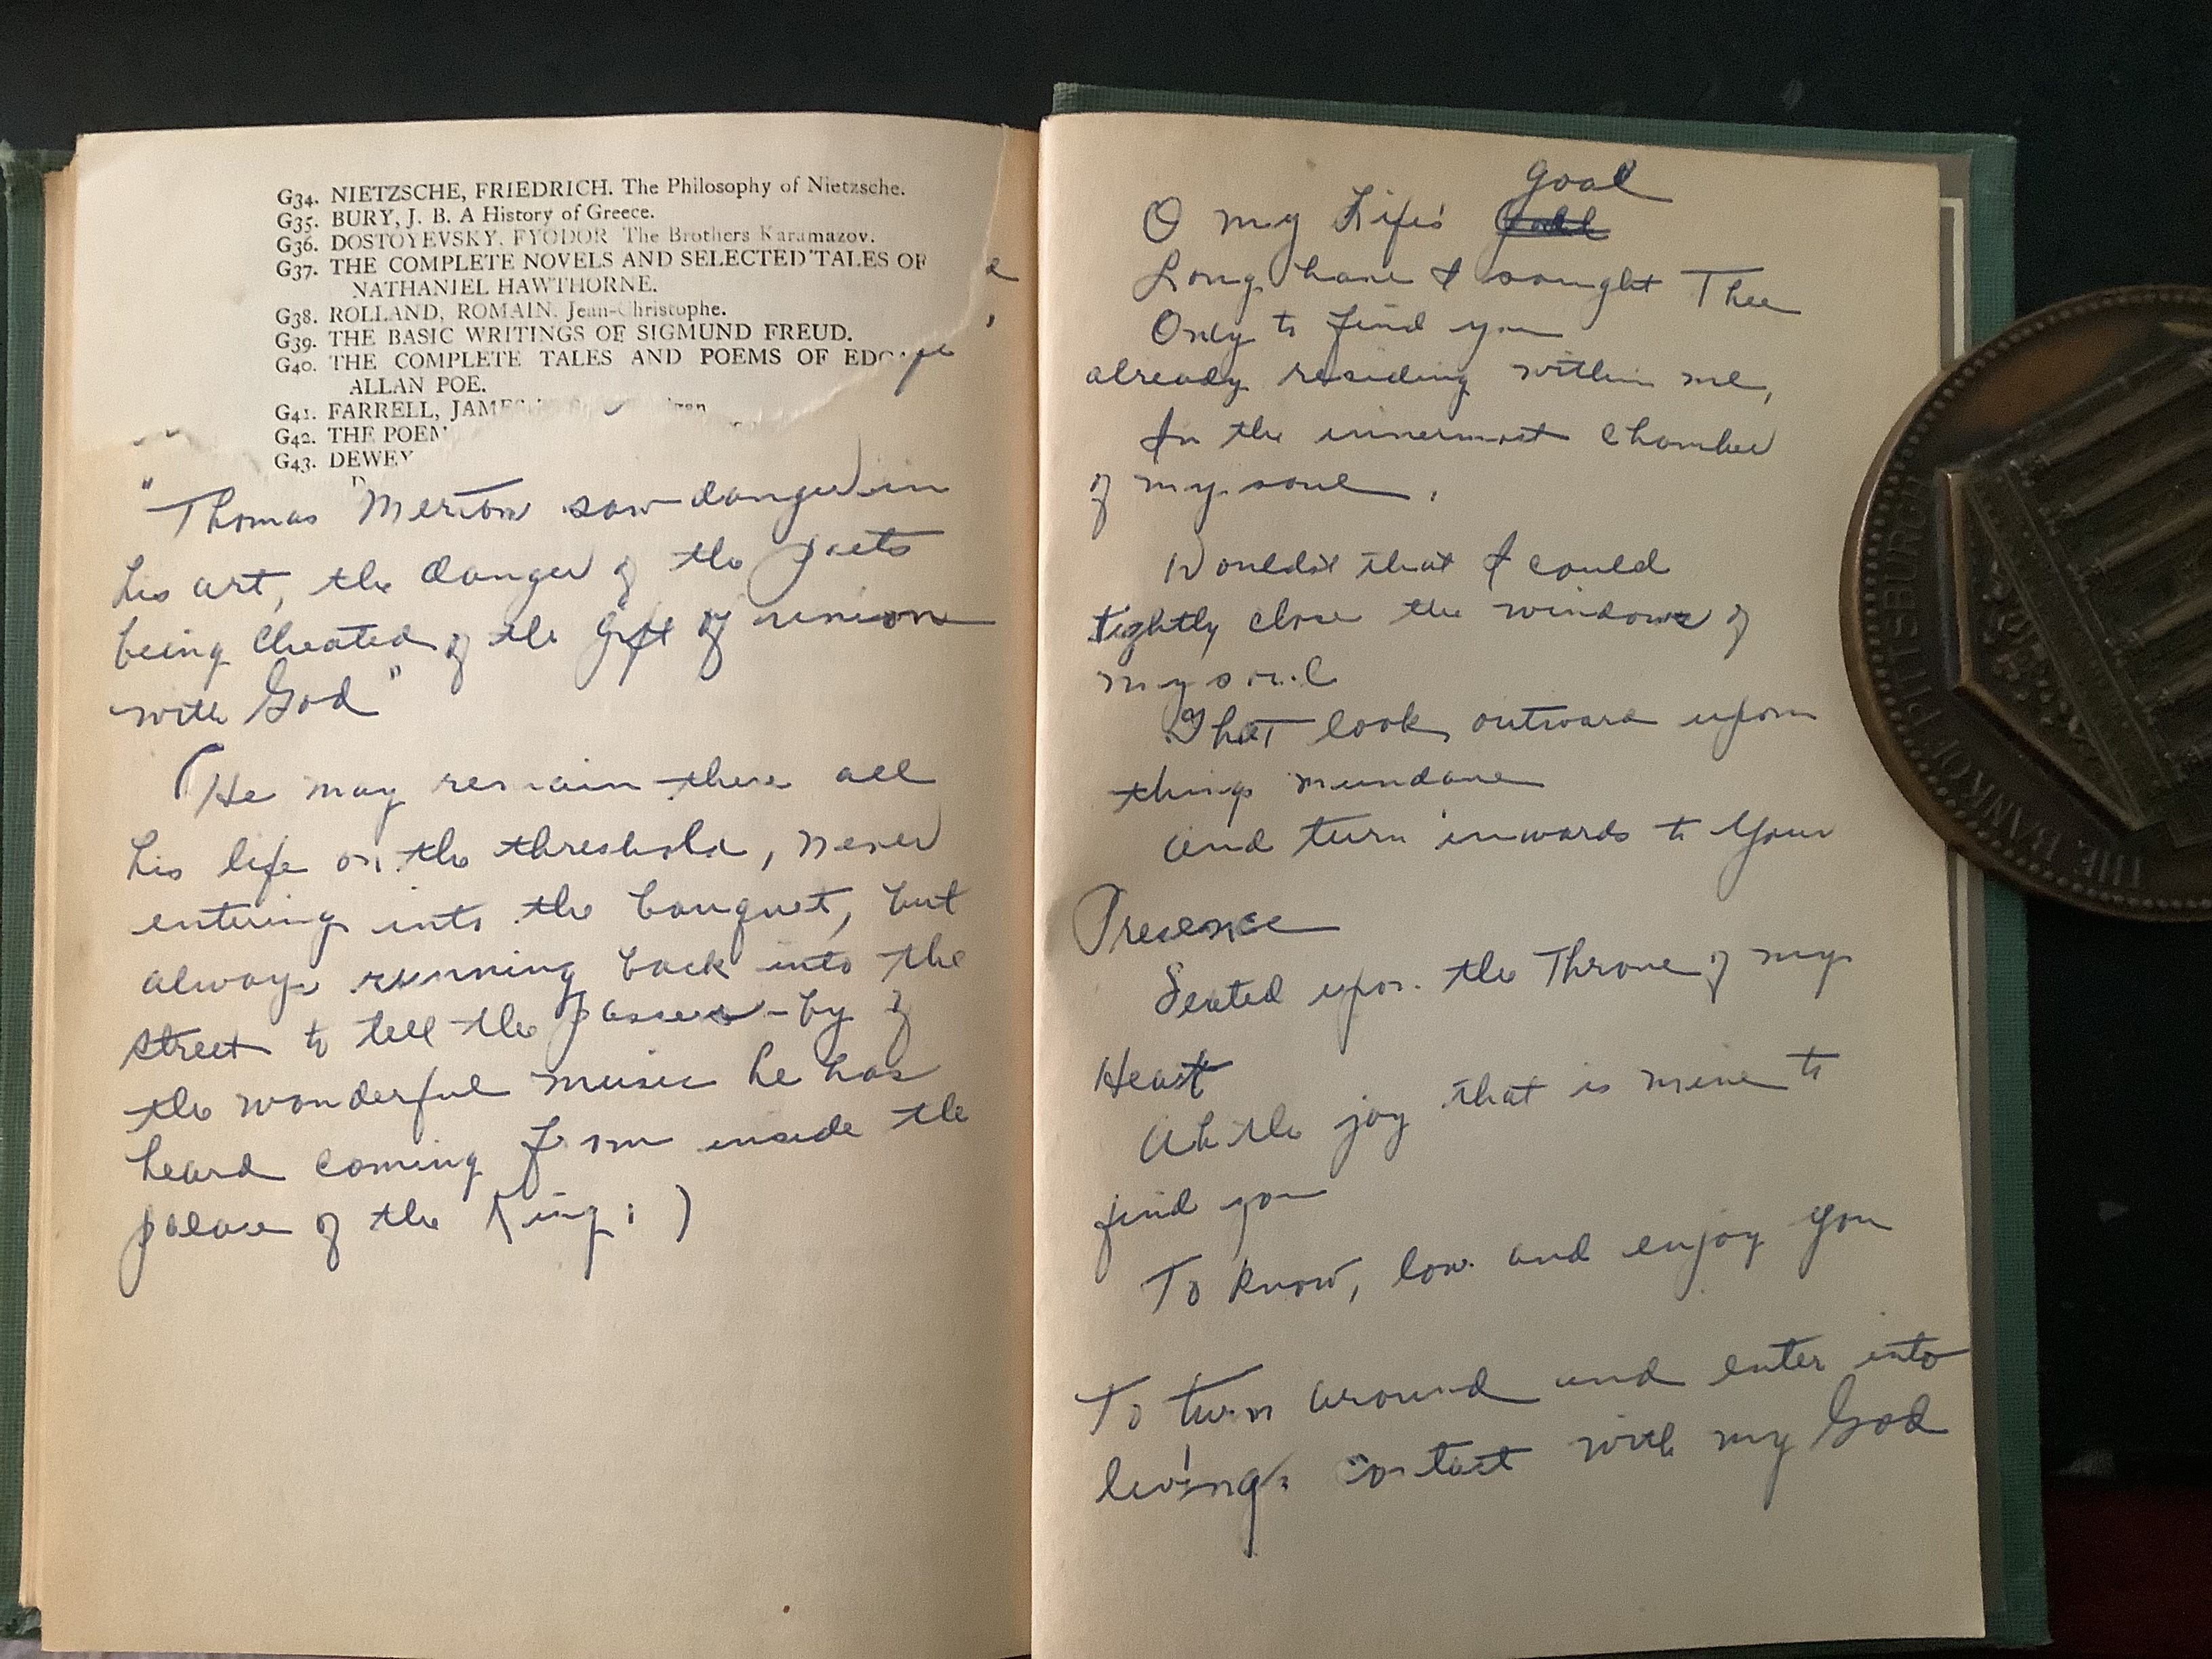 G34. NIETZSCHE, FRIEDRICH. The Philosophy of Nietzsche.
G35. BURY, J. B. A History of Greece.
G36. DOSTOYEVSKY, FYODOR The Brothers Karamazov.
G37. THE COMPLETE NOVELS AND SELECTED TALES OF
NATHANIEL HAWTHORNE.
G38. ROLLAND, ROMAIN. Jean-Christophe.
G39. THE BASIC WRITINGS OF SIGMUND FREUD.
G40. THE COMPLETE TALES AND POEMS OF EDG
ALLAN POE.
G41. FARRELL, JAME
G42. THE POEM
G43. DEWEY
"Thomas Merton saw danger in
his art, the danger of the poets
being cheated of the gift of union
with God"
(He may remain there all
his life on the threshold, never
entering into the banquet, but
always running back into the
street to tell the passers-by of
the wonderful music he has
heard coming from inside the
palace of the King: )
goal
O my Life's
Long have I sought Thee
Only to find you
already residing within me,
In the innermost Chamber
of my soul.
Wouldst that I could
tightly close the windows of
my soul
That look outward upon
things mundane
and turn inwards to Your
Presence
Seated upon the Throne of my
Heart
Ah the joy that is mine to
find you
To know, love and enjoy you
To turn around and enter into
living contact with my God
THE BANK OF PITTSBURGH